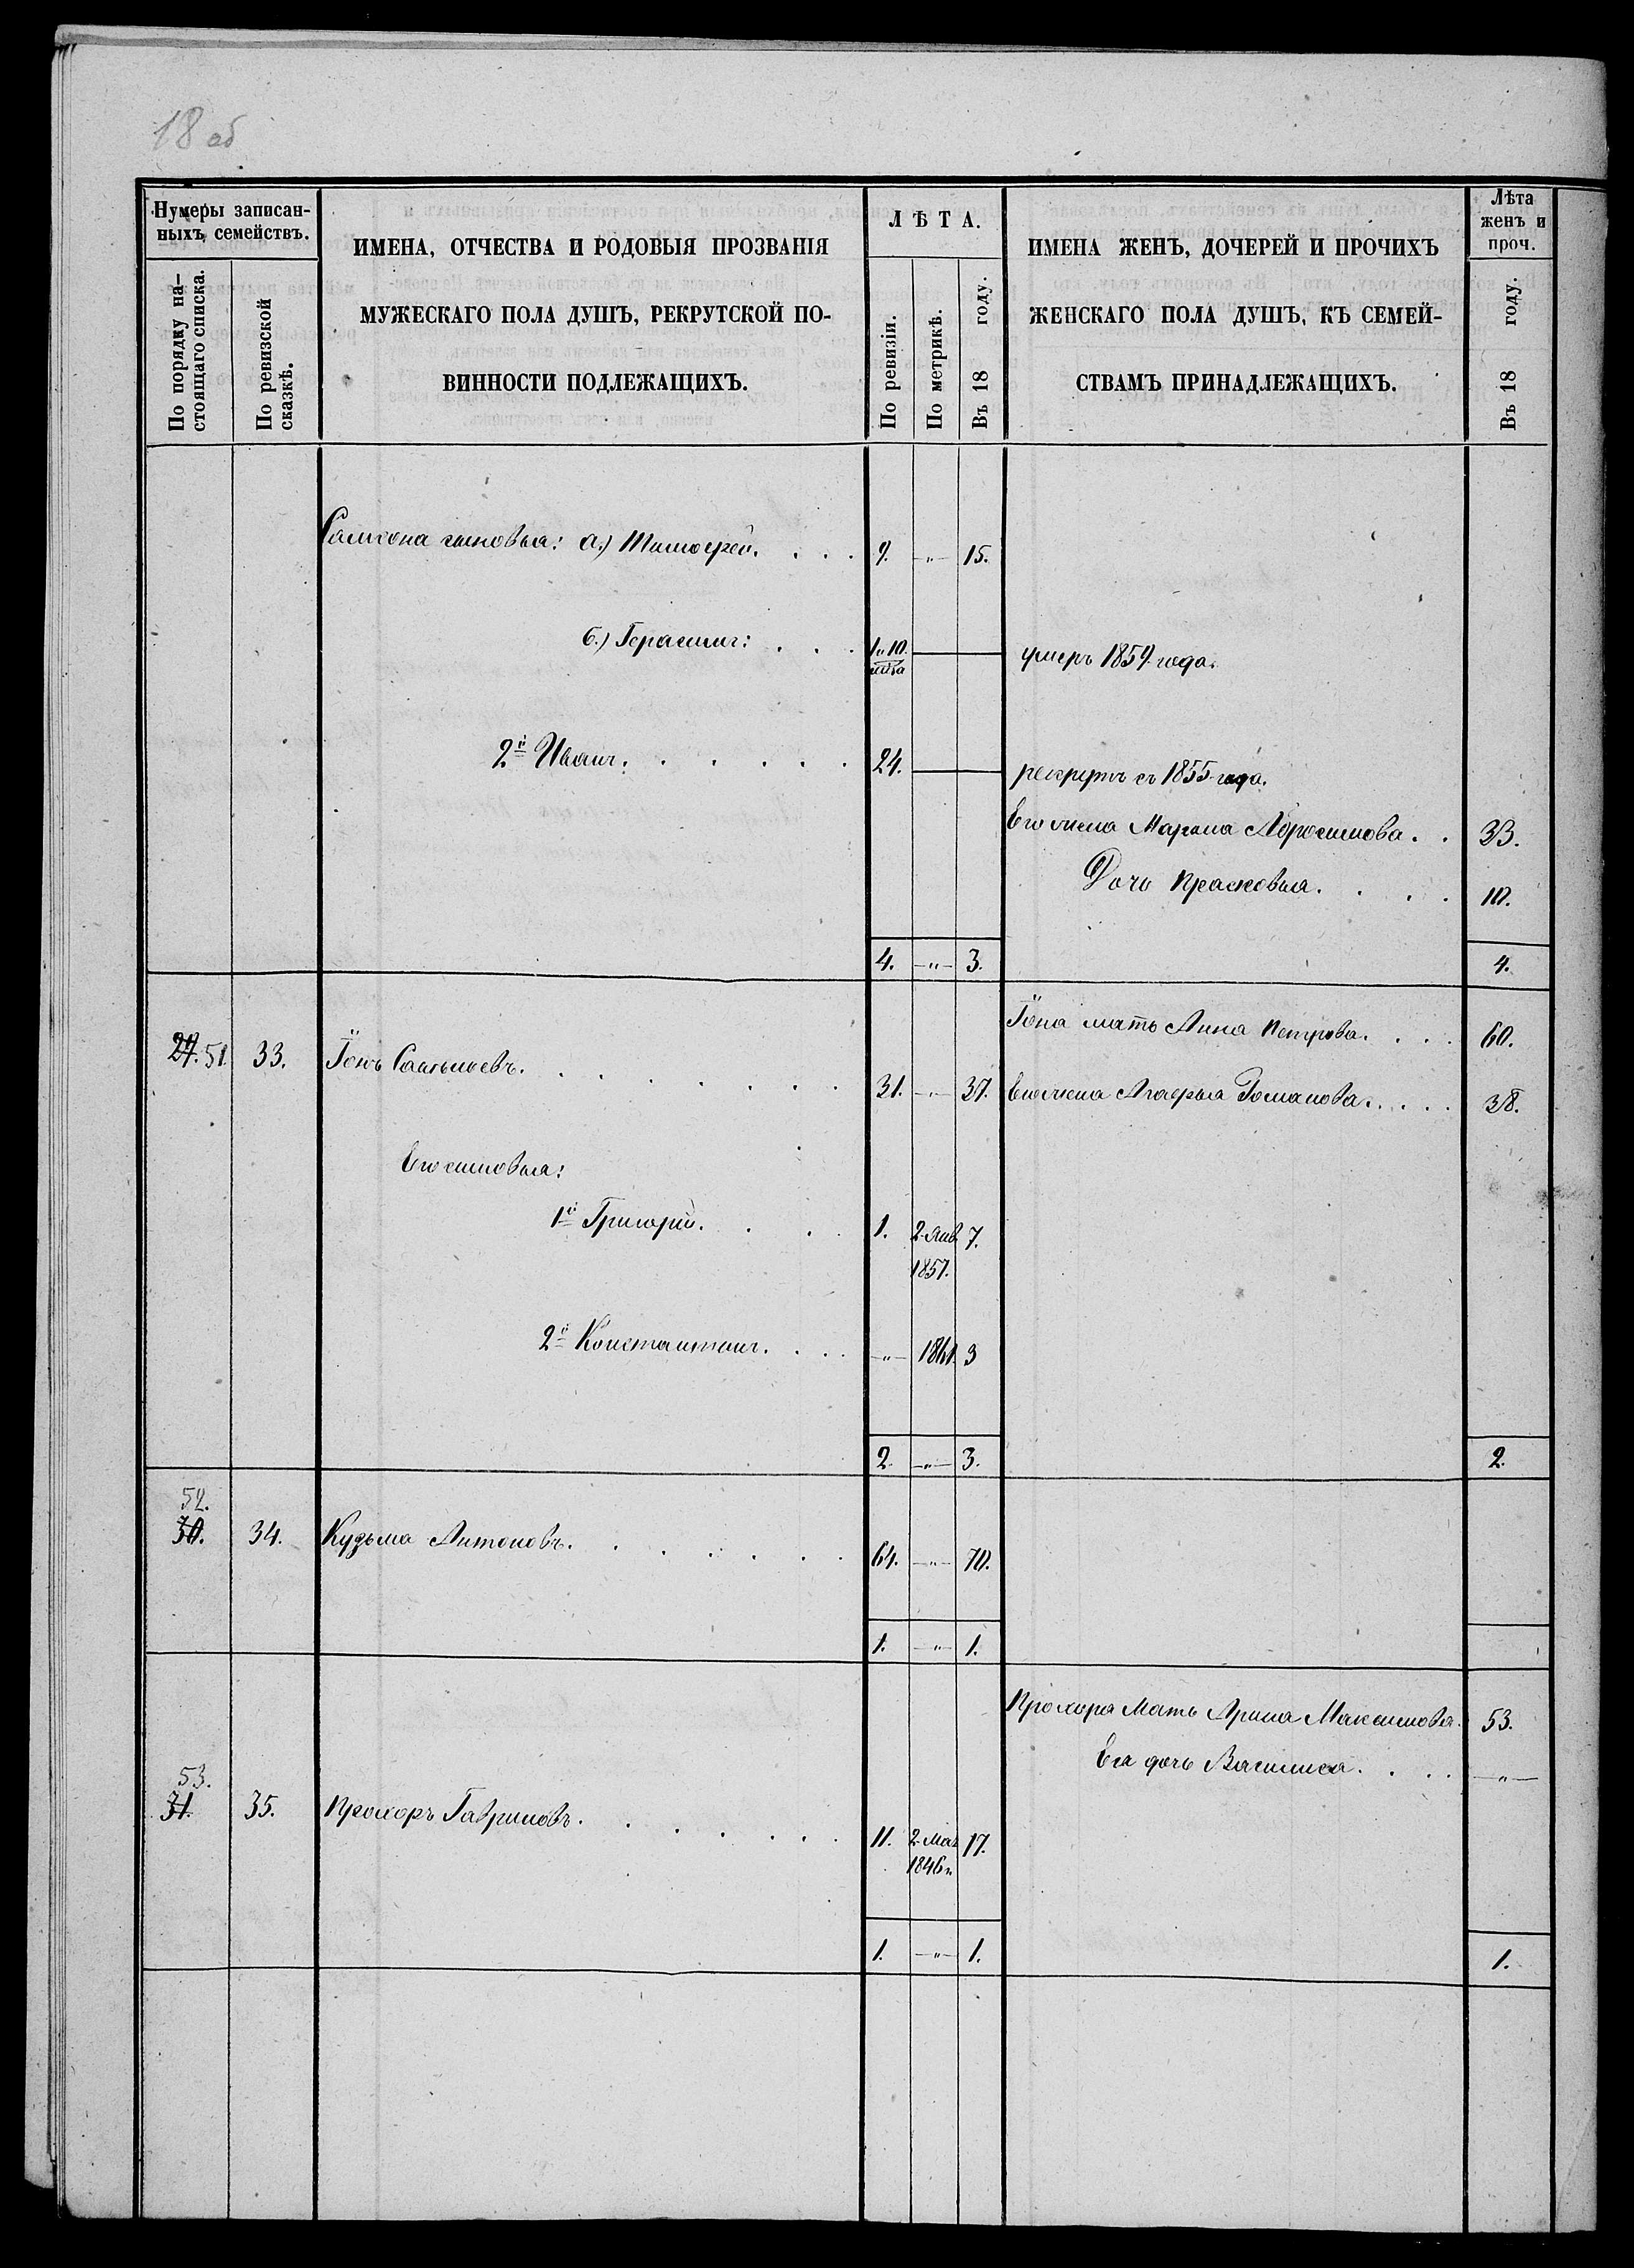 18 об
Нумеры записан-
ныхъ семействъ.
По порядку на-
стоящаго списка.
По ревизской
сказкѣ.
ИМЕНА, ОТЧЕСТВА И РОДОВЫЯ ПРОЗВАНІЯ
МУЖЕСКАГО ПОЛА ДУШЪ, РЕКРУТСКОЙ ПО-
ВИННОСТИ ПОДЛЕЖАЩИХЪ.
ЛѢТА.
По ревизіи.
По метрикѣ.
Въ 18 году.
ИМЕНА ЖЕНЪ, ДОЧЕРЕЙ И ПРОЧИХЪ
ЖЕНСКАГО ПОЛА ДУШЪ, КЪ СЕМЕЙ-
СТВАМЪ ПРИНАДЛЕЖАЩИХЪ.
Лѣта
женъ и
проч.
Въ 18 году.
Самсона сыновья: а.) Тимофей. . . . 9. -"- 15.
б.) Герасимъ: . . . 1/10.
умеръ 1859 года.
2й Иванъ. . . . . . 24.
рекрутъ съ 1855 года.
Его жена Марина Абросимова. . 33.
Дочь Прасковья. . . . 10.
4. -"- 3. 4.
Іона мать Анна Петрова. . . . 60.
29. 51. 33. Іонъ Савельевъ. . . . . . . . 31. -"- 37. Его жена Агафья Романова. . . . . 38.
Его сыновья:
1й Григорій. . . . 1. 2. Янв. 7.
1857.
2й Константинъ. . . . -"- 1861. 3
2. -"- 3. 2.
52.
30. 34. Кузьма Антоновъ. . . . . . . 64. -"- 70.
1. -"- 1.
Прохора Мать Арина Максимова. 53.
Ея дочь Василиса. . . . -"-
53.
31. 35. Прохоръ Гавриловъ. . . . . . . 11. 2. Мая 17.
1846.
1. -"- 1. 1.